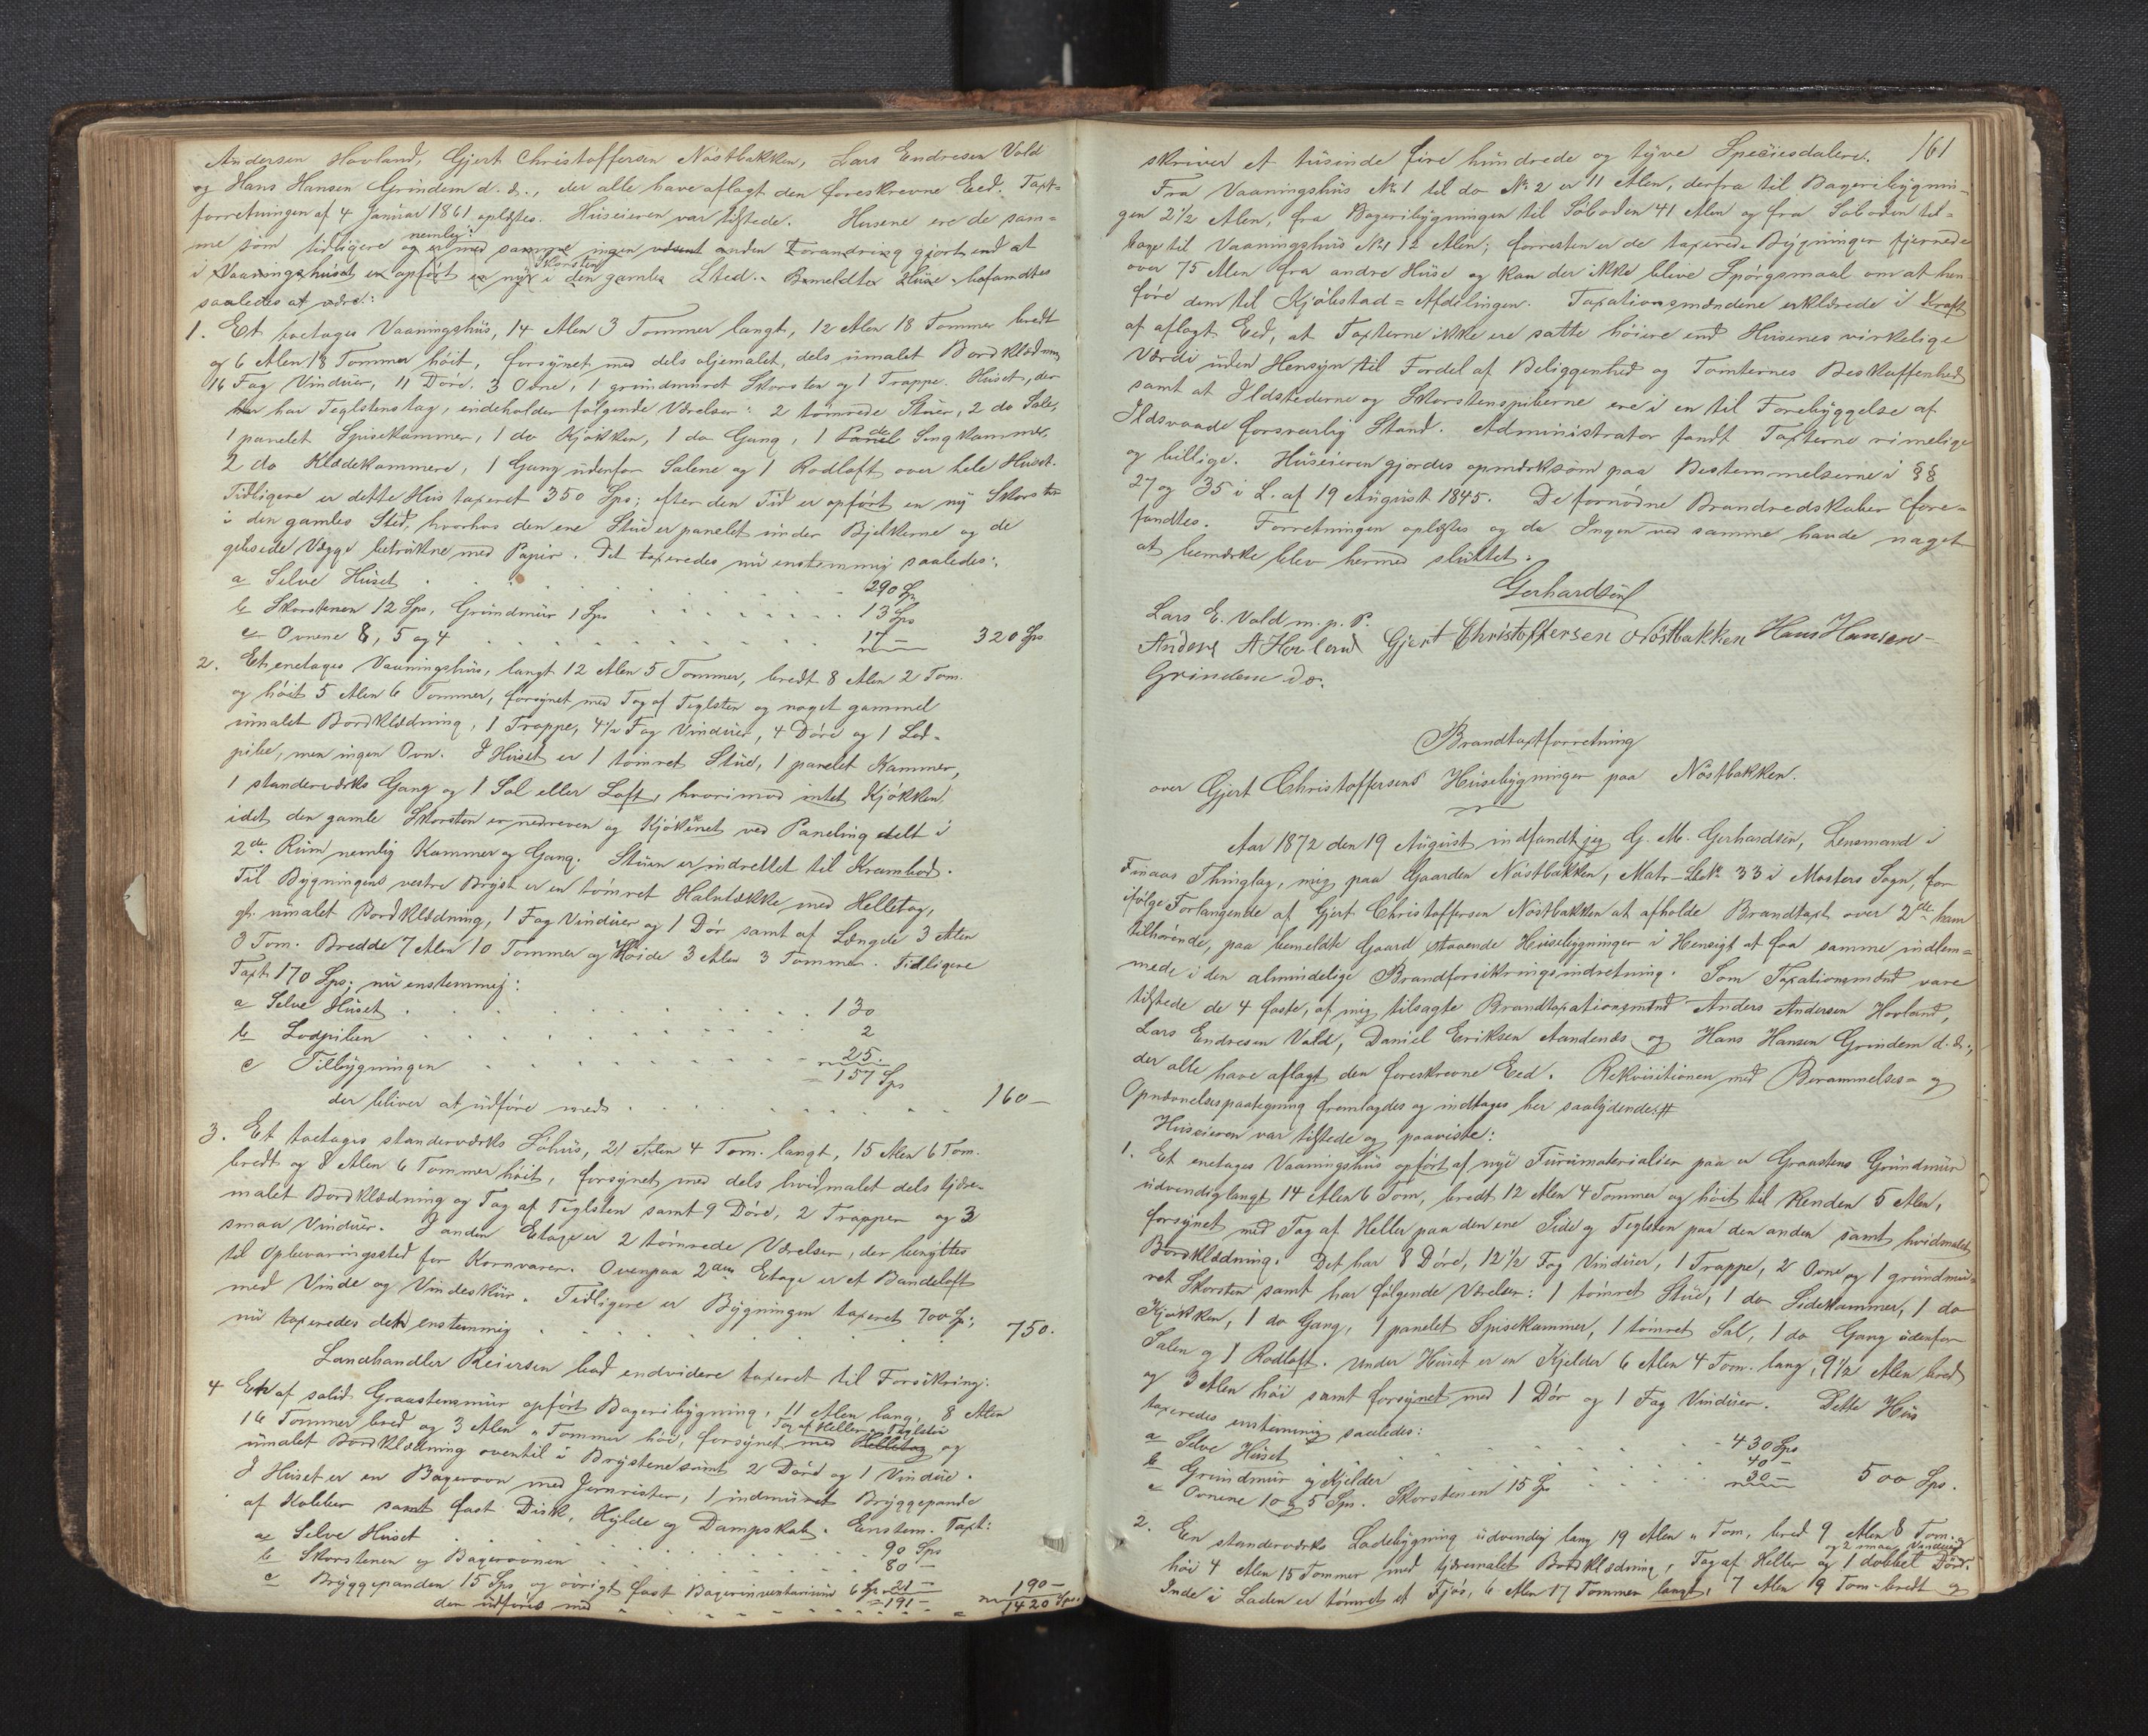 Andersen Hovland, Gjert Christoffersen Nöstbakken, Lars Endresen Vold
og Hans Hansen Grindem d. æ., der alle have aflagt den foreskrevne Eed. Taxt=
forretningen af 4 Januar 1861 oplæstes. Huseieren var tilstede. Husene ere de sam=
me som tidligere og er med samme ingen anden Forandring gjort end at
nemlig:
i Vaaningshuset er opført en ny Skorsten i den gamles Sted. Bemeldte Huse befandtes
saaledes at være:
1. Et toetages Vaaningshus, 14 Alen 3 Tommer langt, 12 Alen 18 Tommer bredt
og 6 Alen 18 Tommer höit, forsynet med dels oljemalet, dels umalet Bordklædning
16 Fag Vinduer, 11 Döre, 3 Ovne, 1 grundmuret Skorsten og 1 Trappe. Huset, der
har Teglstenstag, indeholder følgende Værelser: 2 tömrede Stuer, 2 do Sale,
1 panelet Spisekammer, 1 do Kjökken, 1 do Gang, 1 do Sengkammer,
2 do Klædekammere, 1 Gang udenfor Salene og 1 Rodloft over hele Huset.
Tidligere er dette Hus taxeret 350 Spd; efter den Tid er opført en ny Skorsten
i den gamles Sted, hvorhos den ene Stue er panelet under Bjelkerne og de
gibsede Vægge betrukne med Papir. Det taxeredes nu enstemmig saaledes:
a Selve Huset . . . 290 Spd
b Skorstenen 12 Spd, Grundmur 1 Spd . . . 13 Spd
c Ovnene 8, 5 og 4 . . . 17 — 320 Spd
2. Et enetages Vaaningshus, langt 12 Alen 5 Tommer, bredt 8 Alen 2 Tom.
og höit 5 Alen 6 Tommer, forsynet med Tag af Teglsten og noget gammel
umalet Bordklædning, 1 Trappe, 4½ Fag Vinduer, 4 Döre og 1 Lod=
pibe, men ingen Ovn. I Huset er 1 tömret Stue, 1 panelet Kammer,
1 standerværks Gang og 1 Sal eller Loft, hvorimod intet Kjökken,
idet den gamle Skorsten er nedreven og Kjökkenet ved Paneling delt i
2de Rum nemlig Kammer og Gang. Stuen er indrettet til Krambod.
Til Bygningens vestre Bryst er en tömret Halvtække med Helletag,
gl. umalet Bordklædning, 1 Fag Vinduer og 1 Dör samt af Længde 3 Alen
3 Tom. Bredde 7 Alen 10 Tommer og Höide 3 Alen 3 Tommer. Tidligere
Taxt 170 Spd; nu enstemmig:
a Selve Huset . . . 130
b Lodpiben . . . 2
c Tilbygningen . . . 25.
= 157 Spd
der bliver at udföre med . . . 160 —
3. Et toetages standerværks Söhus, 21 Alen 4 Tom. langt, 15 Alen 6 Tom.
bredt og 8 Alen 6 Tommer höit, forsynet med dels hvidmalet dels tjære=
malet Bordklædning og Tag af Teglsten samt 9 Döre, 2 Trapper og 3
smaa Vinduer. I anden Etage er 2 tömrede Værelser, der benyttes
til Opbevaringssted for Kornvarer. Ovenpaa 2den Etage er et Bandeloft
med Vinde og Vindeskur. Tidligere er Bygningen taxeret 700 Spd;
nu taxeredes det enstemmig . . . 750.
Landhandler Reiersen lod endvidere taxeret til Forsikring:
4 Et af solid Graastensmur opført Bageribygning, 11 Alen lang, 8 Alen
16 Tommer bred og 3 Alen " Tommer höi, forsynet med Helletag og
Tag af Heller og Teglsten
umalet Bordklædning oventil i Brystene samt 2 Döre og 1 Vindue.
I Huset er en Bagerovn med Jernrister, 1 indmuret Bryggepande
af Kobber samt fast Disk, Hylde og Dampskab. Enstem. Taxt:
a Selve Huset . . . 90 Spd
b Skorstenen og Bagerovnen . . . 80 —
c Bryggepanden 15 Spd og övrigt fast Bagerinventarium 6 Spd = 21 — 190 —
der udføres med = 191 — = 1420 Spd.
161
skriver et tusinde fire hundrede og tyve Speciesdalere.
Fra Vaaningshus No 1 til do No 2 er 11 Alen, derfra til Bageribygnin=
gen 2½ Alen, fra Bageribygningen til Söboden 41 Alen og fra Söboden til=
bage til Vaaningshus No 1 12 Alen; forresten er de taxerede Bygninger fjernede
over 75 Alen fra andre Huse og kan der ikke blive Spörgsmaal om at hen=
före dem til Kjöbstad=Afdelingen. Taxationsmændene erklærede i Kraft
af aflagt Eed, at Taxterne ikke ere satte höiere end Husenes virkelige
Værdi uden Hensyn til Fordel af Beliggenhed og Tomternes Beskaffenhed
samt at Ildstederne og Skorstenspiberne ere i en til Forebyggelse af
Ildsvaade forsvarlig Stand. Administrator fandt Taxterne rimelige
og billige. Huseieren gjordes opmærksom paa Bestemmelserne i §§
27 og 35 i L. af 19 August 1845. De fornödne Brandredskaber fore=
fandtes. Forretningen oplæstes og da Ingen ved samme havde noget
at bemærke blev hermed sluttet.
Gerhardsen
Lars E. Vold m. p. P.
Anders A Hovland Gjert Christoffersen Nöstbakken Hans Hansen
Grindem do.
Brandtaxtforretning
over Gjert Christoffersens Husebygninger paa Nöstbakken.
Aar 1872 den 19 August indfandt jeg G. M. Gerhardsen, Lensmand i
Finaas Thinglag, mig paa Gaarden Nöstbakken, Matr. Löb No 33 i Mosters Sogn, for
ifølge Forlangende af Gjert Christoffersen Nöstbakken at afholde Brandtaxt over 2de ham
tilhörende, paa bemeldte Gaard staaende Husebygninger i Hensigt at faa samme indlem=
mede i den almindelige Brandforsikringsindretning. Som Taxationsmænd vare
tilstede de 4 faste, af mig tilsagte Brandtaxationsmænd Anders Andersen Hovland,
Lars Endresen Vold, Daniel Eriksen Aandenæs og Hans Hansen Grindem d. æ.,
der alle have aflagt den foreskrevne Eed. Rekvisitionen med Berammelses= og
Opnævnelsespaategning fremlagdes og indtages her saalydende: #
Huseieren var tilstede og paaviste:
1. Et enetages Vaaningshus opført af nye Furumaterialier paa en Graastens Grundmur
udvendig langt 14 Alen 6 Tom, bredt 12 Alen 4 Tommer og höit til Renden 5 Alen,
forsynet med Tag af Heller paa den ene Side og Teglsten paa den anden samt hvidmalet
Bordklædning. Det har 8 Döre, 12½ Fag Vinduer, 1 Trappe, 2 Ovne og 1 grundmu=
ret Skorsten samt har følgende Værelser: 1 tömret Stue, 1 do Sidekammer, 1 do
Kjökken, 1 do Gang, 1 panelet Spisekammer, 1 tömret Sal, 1 do Gang udenfor
Salen og 1 Rodloft. Under Huset er en Kjelder 6 Alen 4 Tom. lang, 9½ Alen bred
og 3 Alen höi samt forsynet med 1 Dör og 1 Fag Vinduer. Dette Hus
taxeredes enstemmig saaledes:
a Selve Huset . . . 430 Spd
b Grundmur og Kjelder . . . 40 —
c Ovnene 10 og 5 Spd. Skorstenen 15 Spd . . . 30 — 500 Spd.
2. En standerværks Ladebygning udvendig lang 19 Alen " Tom, bred 9 Alen 8 Tom. og
höi 4 Alen 15 Tommer med tjæremalet Bordklædning, Tag af Heller og 1 dobbet Dör.
og 2 smaa Vinduer
Inde i Laden er tömret et Fjös, 6 Alen 17 Tommer langt, 7 Alen 19 Tom bredt og